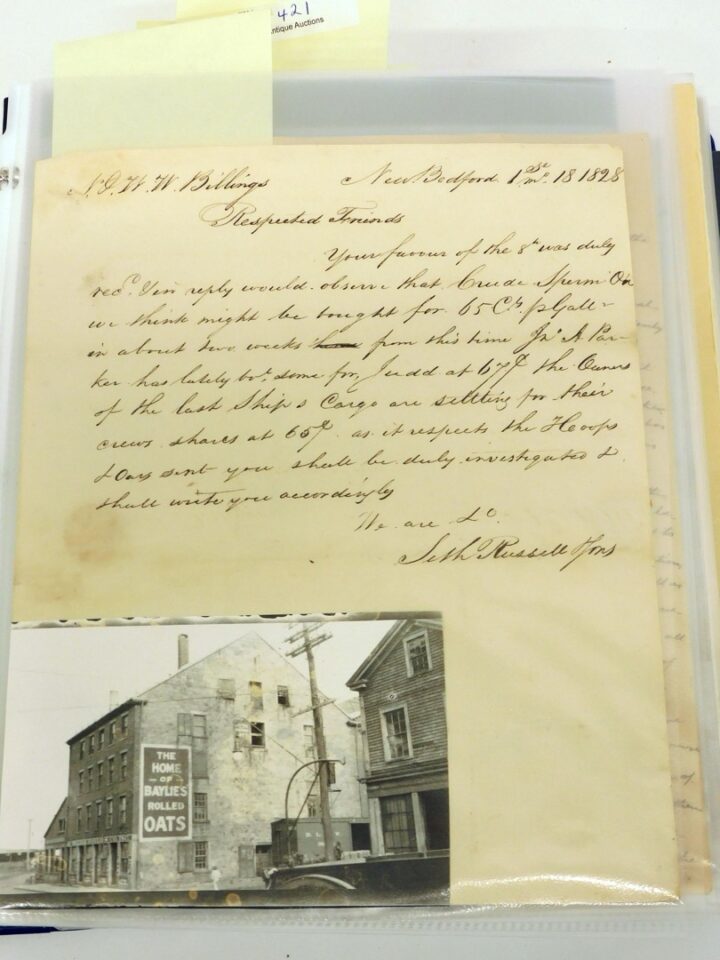 421
ntique Auctions
N. & W. W. Billings New Bedford 1st mo. 18 1828
Respected Friends
Your favour of the 8th was duly
recd. & in reply would observe that Crude Sperm Oil
we think might be bought for 65 Cts. p Gall-
in about two weeks from this time Jno A Par-
ker has lately bot. some for Judd at 67¢ the Owners
of the last Ship's Cargo are settling for their
crews shares at 65¢ as it respects the Hoops
& Oars sent you shall be duly investigated &
shall write you accordingly
We are &c.
Seth Russell & Sons
THE
HOME
OF
BAYLIES
ROLLED
OATS